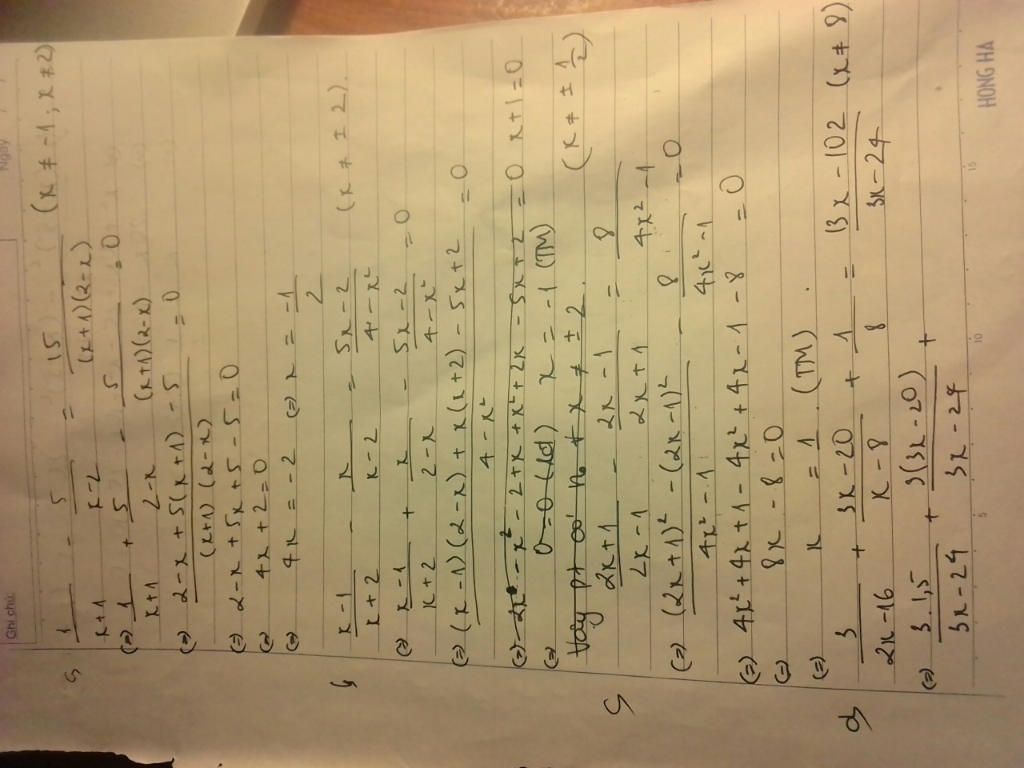 Ghi chú:
Ngày
a) 1/(x+1) - 5/(x-2) = 15/((x+1)(2-x)) (x ≠ -1, x ≠ 2)
(=) 1/(x+1) + 5/(2-x) - 5/((x+1)(2-x)) = 0
(=) (2-x+5(x+1)-5)/((x+1)(2-x)) = 0
(=) 2-x+5x+5-5 = 0
(=) 4x+2 = 0
(=) 4x = -2 (=) x = -1/2
b) (x-1)/(x+2) - x/(x-2) = (5x-2)/(4-x²) (x ≠ ± 2).
(=) (x-1)/(x+2) + x/(2-x) - (5x-2)/(4-x²) = 0
(=) ((x-1)(2-x)+x(x+2)-5x+2)/(4-x²) = 0
(=) 2x - x² - 2+x + x²+2x - 5x+2 = 0 x+1=0
(=) 0=0 (lđ) x = -1 (TM)
Vậy pt có n₀ x ≠ ± 2.
c) (2x+1)/(2x-1) - (2x-1)/(2x+1) = 8/(4x²-1) (x ≠ ± 1/2)
(=) ((2x+1)² - (2x-1)²)/(4x²-1) - 8/(4x²-1) = 0
(=) 4x²+4x+1-4x²+4x-1-8 = 0
(=) 8x-8=0
(=) x = 1 (TM)
d) 3/(2x-16) + (3x-20)/(x-8) + 1/8 = (13x-102)/(3x-24) (x ≠ 8)
(=) 3.1,5/(3x-24) + 3(3x-20)/(3x-24) +
5 10 15
HONG HA